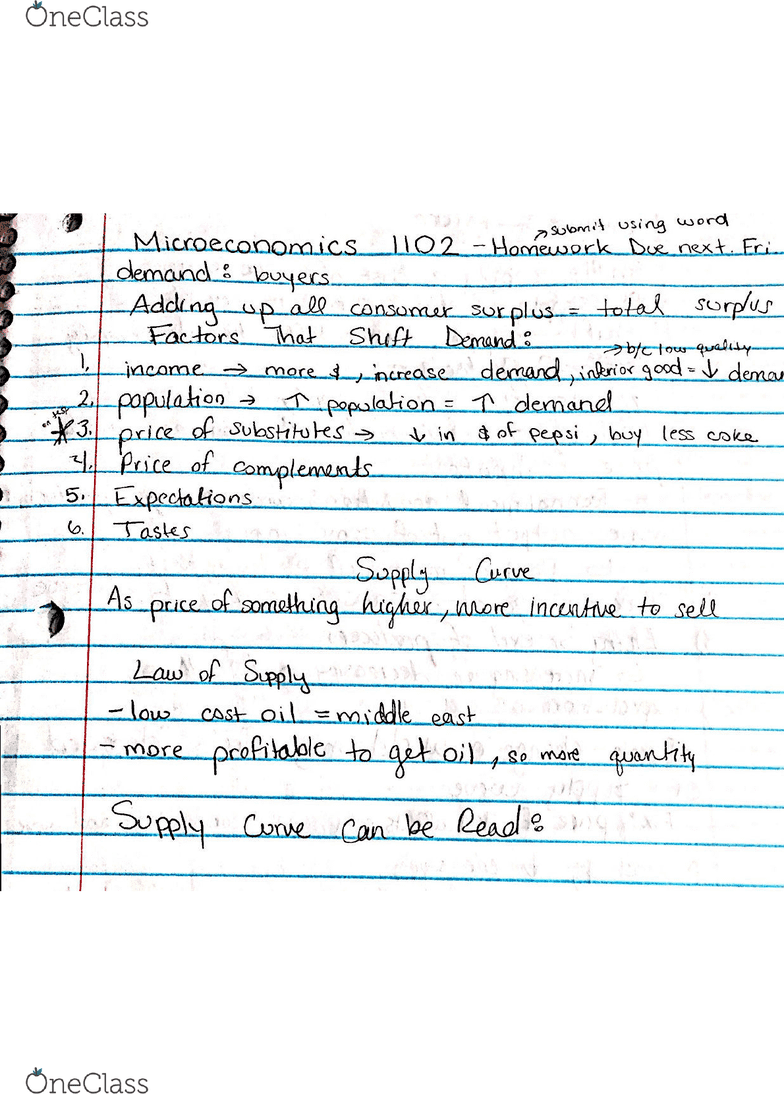 OneClass
→ submit using word
Microeconomics 1102 - Homework Due next Fri.
demand: buyers
Adding up all consumer surplus = total surplus
Factors That Shift Demand:
→ b/c low quality
1. income → more $, increase demand, inferior good = ↓ deman
2. population → ↑ population = ↑ demand
* 3. price of substitutes → ↓ in $ of pepsi, buy less coke
4. Price of complements
5. Expectations
6. Tastes
Supply Curve
As price of something higher, more incentive to sell
Law of Supply
- low cost oil = middle east
- more profitable to get oil, so more quantity
Supply Curve Can be Read:
OneClass